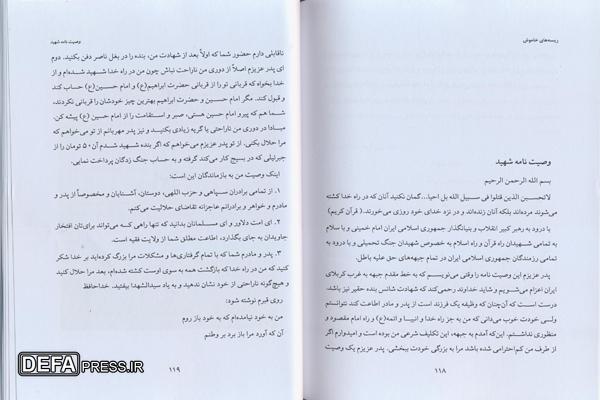 ریسه‌های خاموش
وصیت نامه شهید
بسم الله الرحمن الرحیم
لاتحسبن الذین قتلوا فی سبیل الله بل احیا...گمان نکنید آنان که در راه خدا کشته
می‌شوند مرده‌اند بلکه آنان زنده‌اند و در نزد خدای خود روزی می‌خورند.( قرآن کریم)
با درود به رهبر کبیر انقلاب و بنیانگذار جمهوری اسلامی ایران امام خمینی و با سلام
به تمامی شهیدان راه قرآن و راه اسلام به خصوص شهیدان جنگ تحمیلی و با درود به
تمامی رزمندگان جمهوری اسلامی ایران در تمام جبهه‌های حق علیه باطل.
پدر عزیزم این وصیت نامه را وقتی می‌نویسم که به خط مقدم جبهه به غرب کربلای
ایران اعزام می‌شویم و شاید خداوند رحمی کند که شهادت شانس بنده حقیر نیز باشد.
درست است که آن‌چنان که وظیفه یک فرزند است از پدر و مادر اطاعت کند نتوانستم
ولی خودت خوب می‌دانی که من به جز راه خدا و انبیا و ائمه(ع) و راه امام مقصود و
منظوری نداشتم. این‌که آمدم به جبهه، این تکلیف شرعی من بوده است و امیدوارم اگر
از طرف من کم‌احترامی شده باشد مرا به بزرگی خودت ببخشی. پدر عزیزم یک وصیت
۱۱۸
وصیت نامه شهید
ناقابلی دارم حضور شما که اولاً بعد از شهادت من، بنده را در بغل ناصر دفن بکنید. دوم
ای پدر عزیزم اصلاً از دوری من ناراحت نباش چون من در راه خدا شهید شده‌ام و از
خدا بخواه که قربانی تو را از قربانی حضرت ابراهیم(ع) و امام حسین(ع) حساب کند
و قبول کند. مگر امام حسین و حضرت ابراهیم بهترین چیز خودشان را قربانی نکردند،
شما هم که پیرو امام حسین هستی، صبر و استقامت را از امام حسین(ع) پیشه کن.
مبادا در دوری من ناراحتی یا گریه زیادی بکنید و نیز پدر مهربانم از تو می‌خواهم که
مرا حلال بکنی. از تو پدر عزیزم می‌خواهم که اگر بنده شهید شدم آن ۵۰ تومان را از
جبرئیلی که در بسیج کار می‌کند گرفته و به حساب جنگ زدگان پرداخت نمایی.
اینک وصیت من به بازماندگان این است:
۱. از تمامی برادران سپاهی و حزب اللهی، دوستان، آشنایان و مخصوصاً از پدر و
مادرم و خواهر و برادرانم عاجزانه تقاضای حلالیت می‌کنم.
۲. ای امت دلاور و ای مسلمانان بدانید که تنها راهی که می‌تواند برای‌تان افتخار
جاویدان به جای بگذارد، اطاعت مطلق شما از ولایت فقیه است.
۳. پدر و مادرم شما که با تمام گرفتاری‌ها و مشکلات مرا بزرگ کرده‌اید بر شکر
کنید که من در راه خدا که بازگشت همه به سوی اوست کشته شده‌ام، بعد مرا حلال کنید
و هیچ‌گونه ناراحتی از خود نشان ندهید و به یاد سیدالشهدا بیفتید. خداحافظ
روی قبرم نوشته شود:
من به خود نیامده‌ام که به خود باز روم
آن که آورد مرا باز برد بر وطنم
۱۱۹
DEFAPRESS.IR